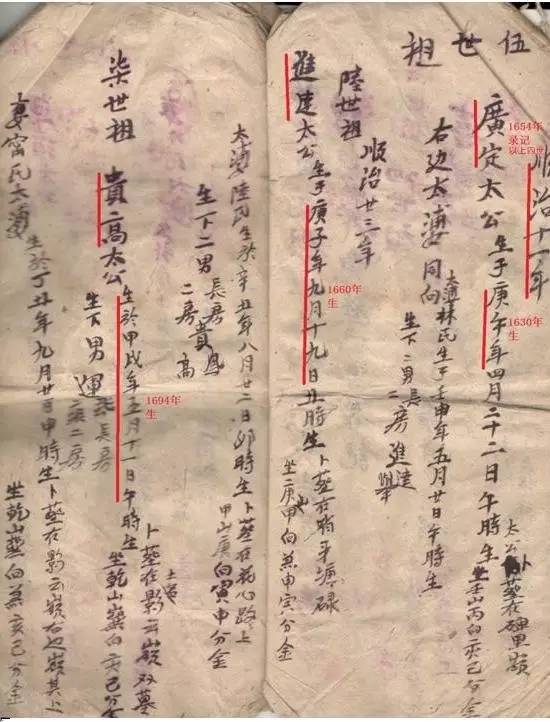 伍世祖
順治十一年
1654年
录记
以上四世
廣定太公生于庚午年四月二十二日午時生
1630年
生
太公卜葬在
坐壬山丙向亥巳分金
右边太婆同向
太婆林氏生于壬申年五月廿日午時生
生下二男長房進達
二房舉
陸世祖
順治廿三年
進達太公生于庚子年九月十九日丑時生卜葬在
1660年
生
坐庚山甲向兼申寅分金
太婆陸氏生於辛丑年八月廿二日卯時生卜葬在花心路上
甲山庚向寅申分金
生下二男長房貴鳳
二房高
柒世祖
貴高太公生於甲戌年五月十一日午時生
1694年
生
卜葬在影云嶺双墓
坐乾山巽向亥巳分金
生下男運長房
二房
甯氏太婆生於丁丑年九月廿日申時生卜葬在影云嶺右边嶺其上
坐乾山巽向兼亥巳分金